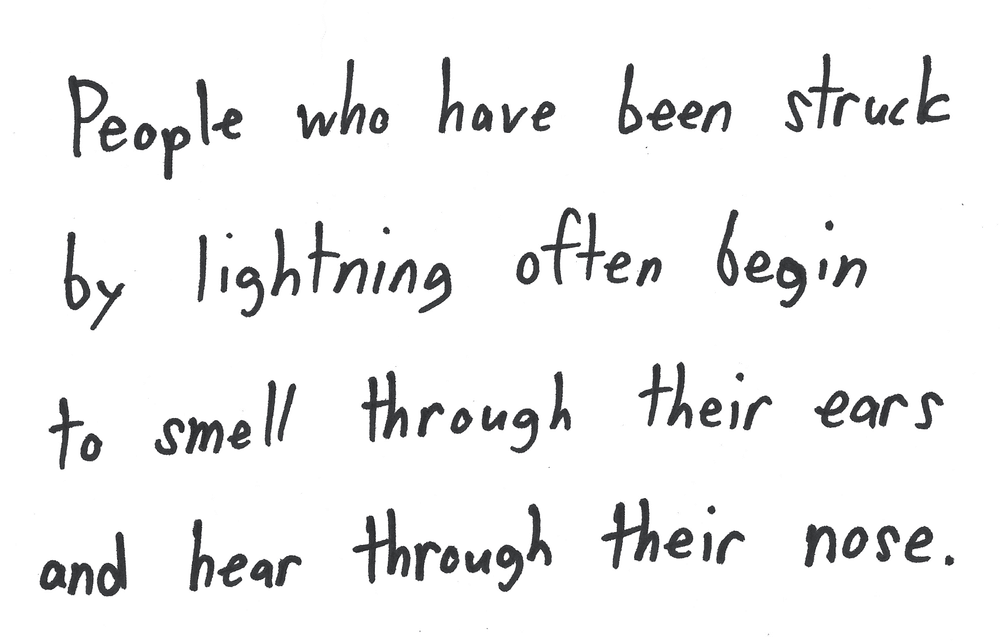 People who have been struck
by lightning often begin
to smell through their ears
and hear through their nose.